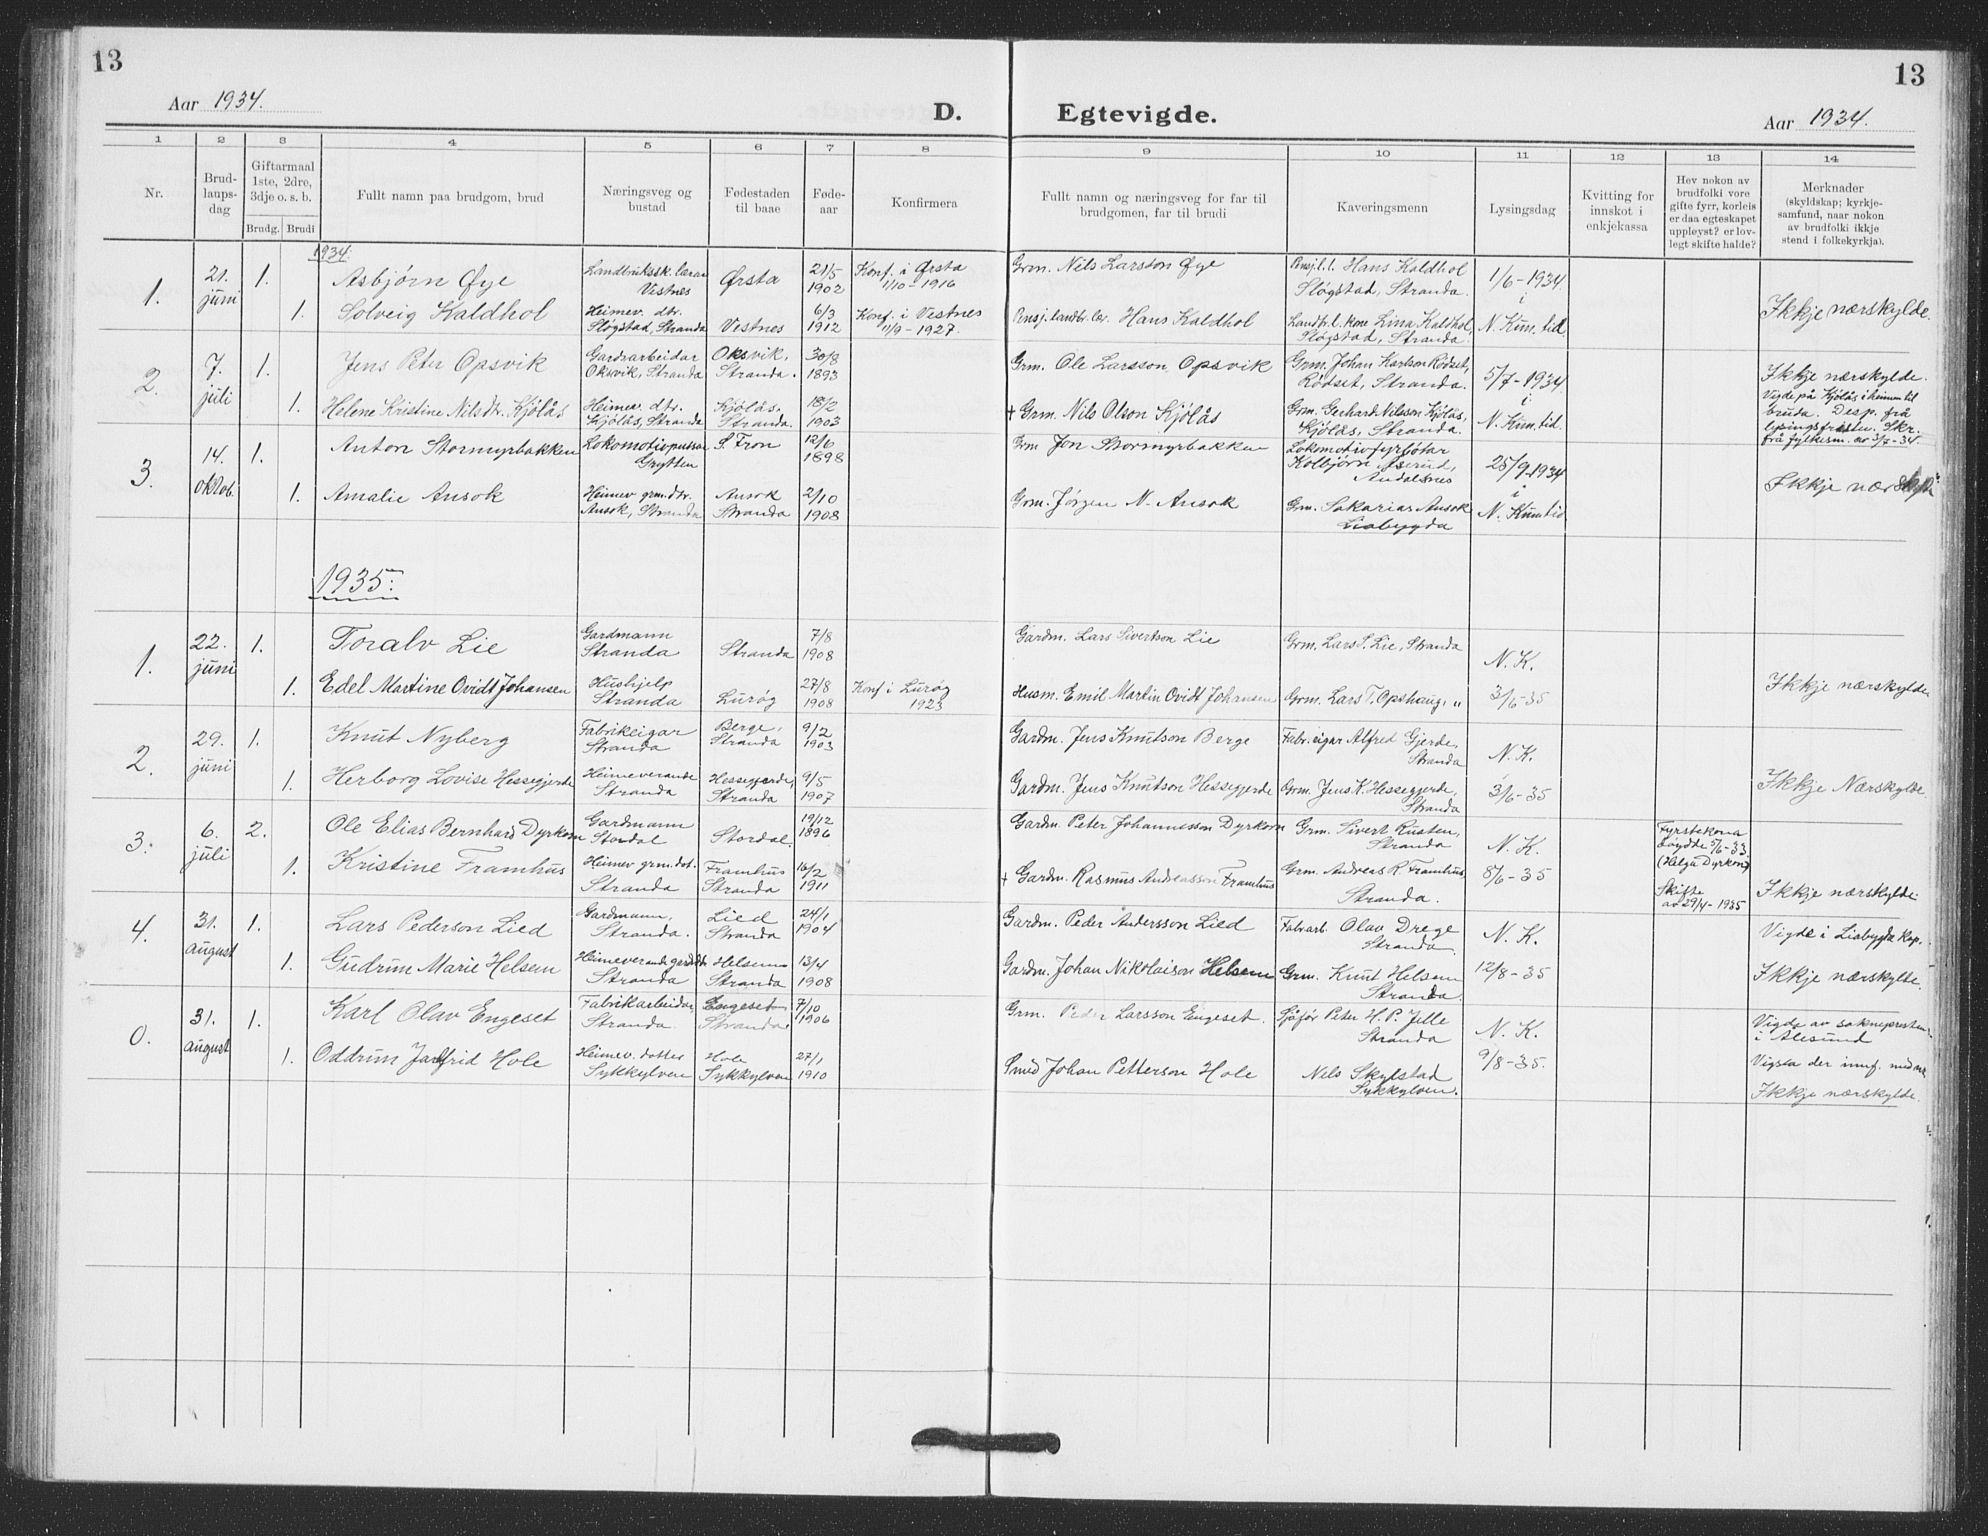 13
13
Aar 1934.
D. Egtevigde.
Aar 1934.
1 2 3 4 5 6 7 8 9 10 11 12 13 14
Nr.
Brud-
laups-
dag
Giftarmaal
1ste, 2dre,
3dje o. s. b.
Brudg. Brudi
Fullt namn paa brudgom, brud
Næringsveg og
bustad
Fødestaden
til baae
Føde-
aar
Konfirmera
Fullt namn og næringsveg for far til
brudgomen, far til brudi
Kaveringsmenn
Lysingsdag
Kvitting for
innskot i
enkjekassa
Hev nokon av
brudfolki vore
gifte fyrr, korleis
er daa egteskapet
uppløyst? er lov-
legt skifte halde?
Merknader
(skyldskap; kyrkje-
samfund, naar nokon
av brudfolki ikkje
stend i folkekyrkja).
1934:
1.
21.
juni
1.
Asbjørn Øye
Landbrukssk. lærar
Vestnes
Ørsta
21/5
1902
Konf. i Ørsta
1/10 - 1916
Grm. Nils Larsson Øye
Pensj. l. l. Hans Kaldhol
Sløgstad, Stranda.
1/6 - 1934
i
N. Kum. tid.
1.
Solveig Kaldhol
Heimev. dtr.
Sløgstad, Stranda
Vestnes
6/3
1912
Konf. i Vestnes
11/9 - 1927.
Pensj. landbr. lær. Hans Kaldhol
Landbr. l. kone Lina Kaldhol
Sløgstad, Stranda.
Ikkje nærskylde.
2.
7.
juli
1.
Jens Peter Opsvik
Gardsarbeidar
Oksvik, Stranda
Oksvik,
Stranda.
30/8
1893
Grm. Ole Larsson Opsvik
Grm. Johan Karlson Rødset,
Rødset, Stranda.
5/7 - 1934
i
N. Kum. tid.
1.
Helene Kristine Nilsdtr. Kjølås
Heimev. dtr.
Kjølås, Stranda
Kjølås,
Stranda.
18/2
1903
+ Grm. Nils Olson Kjølås
Grm. Gerhard Nilsson Kjølås,
Kjølås, Stranda.
Ikkje nærskylde.
Vigde på Kjølås i heimen til
bruda. Desp. frå
lysingsfristen. Skr.
frå fylkesm. av 3/7 - 34
3.
14.
oktob.
1.
Anton Stormyrbakken
Lokomotivpussar
Grytten
S. Fron
12/6
1898
Grm Jon Stormyrbakken
Lokomotivfyrbøtar
Kolbjørn Aserud,
Åndalsnes
25/9 - 1934
i
N. Kum. tid
1.
Amalie Ansok
Heimev grm. dtr.
Ansok, Stranda
Ansok
Stranda
2/10
1908
Grm. Jørgen N. Ansok
Grm. Sakarias Ansok
Liabygda
Ikkje nærskylde
1935:
1.
22.
juni
1.
Toralv Lie
Gardmann
Stranda
Stranda
7/8
1908
Gardm. Lars Sivertson Lie
Grm. Lars S. Lie, Stranda
N. K.
3/6 - 35
1.
Edel Martine Ovidt Johansen
Hushjelp
Stranda
Lurøy
27/8
1908
Konf i Lurøy
1923
Husm. Emil Martin Ovidt Johansen
Grm. Lars T. Opshaug, "
Ikkje nærskylde
2.
29.
juni
1.
Knut Nyberg
Fabrikeigar
Stranda
Berge,
Stranda
9/2
1903
Gardm. Jens Knutson Berge
Fabr. eigar Alfred Gjerde,
Stranda
N. K.
3/6 - 35
1.
Herborg Lovise Hessegjerde
Heimeverande
Stranda
Hessegjerde,
Stranda
9/5
1907
Gardm. Jens Knutson Hessegjerde
Grm. Jens K. Hessegjerde,
Stranda
Ikkje Nærskylde.
3.
6.
juli
2.
Ole Elias Bernhard Dyrkorn
Gardmann
Stordal
Stordal.
19/12
1896
Gardm. Peter Johannesson Dyrkorn
Grm. Sivert Rusten,
Stranda
N. K.
8/6 - 35
Fyrstekona
døydde 5/6 - 33
(Helga Dyrkorn)
1.
Kristine Framhus
Heimev grm. dot.
Stranda
Framhus
Stranda
16/2
1911
+ Gardm. Rasmus Andreasson Framhus
Grm. Andreas R. Framhus,
Stranda.
Skifte
av 29/4 - 1935
Ikkje nærskylde
4.
31.
august
1.
Lars Pederson Lied
Gardmann,
Stranda.
Lied
Stranda
24/1
1904
Gardm. Peder Andersson Lied
Fabr.arb. Olav Drege
Stranda
N. K.
12/8 - 35
Vigde i Liabygda kap.
1.
Gudrun Marie Helsem
Heimeverande
Stranda
Helsem
Stranda
13/4
1908
Gardm. Johan Nikolaison Helsem
Grm. Knut Helsem
Stranda
Ikkje nærskylde.
0.
31.
august
1.
Karl Olav Engeset
Fabrikarbeidar
Stranda
Engeset
Stranda
7/10
1906
Grm. Peder Larsson Engeset.
Sjåfør Peter H. P. Jelle
Stranda
N. K.
9/8 - 35.
Vigde av soknepresten
i Ålesund
1.
Oddrun Jarfrid Hole
Heimev. dotter
Sykkylven
Hole
Sykkylven
27/1
1910
Smed Johan Petterson Hole
Nils Skylstad
Sykkylven.
Vigsla der innf. med nr.
Ikkje nærskylde.